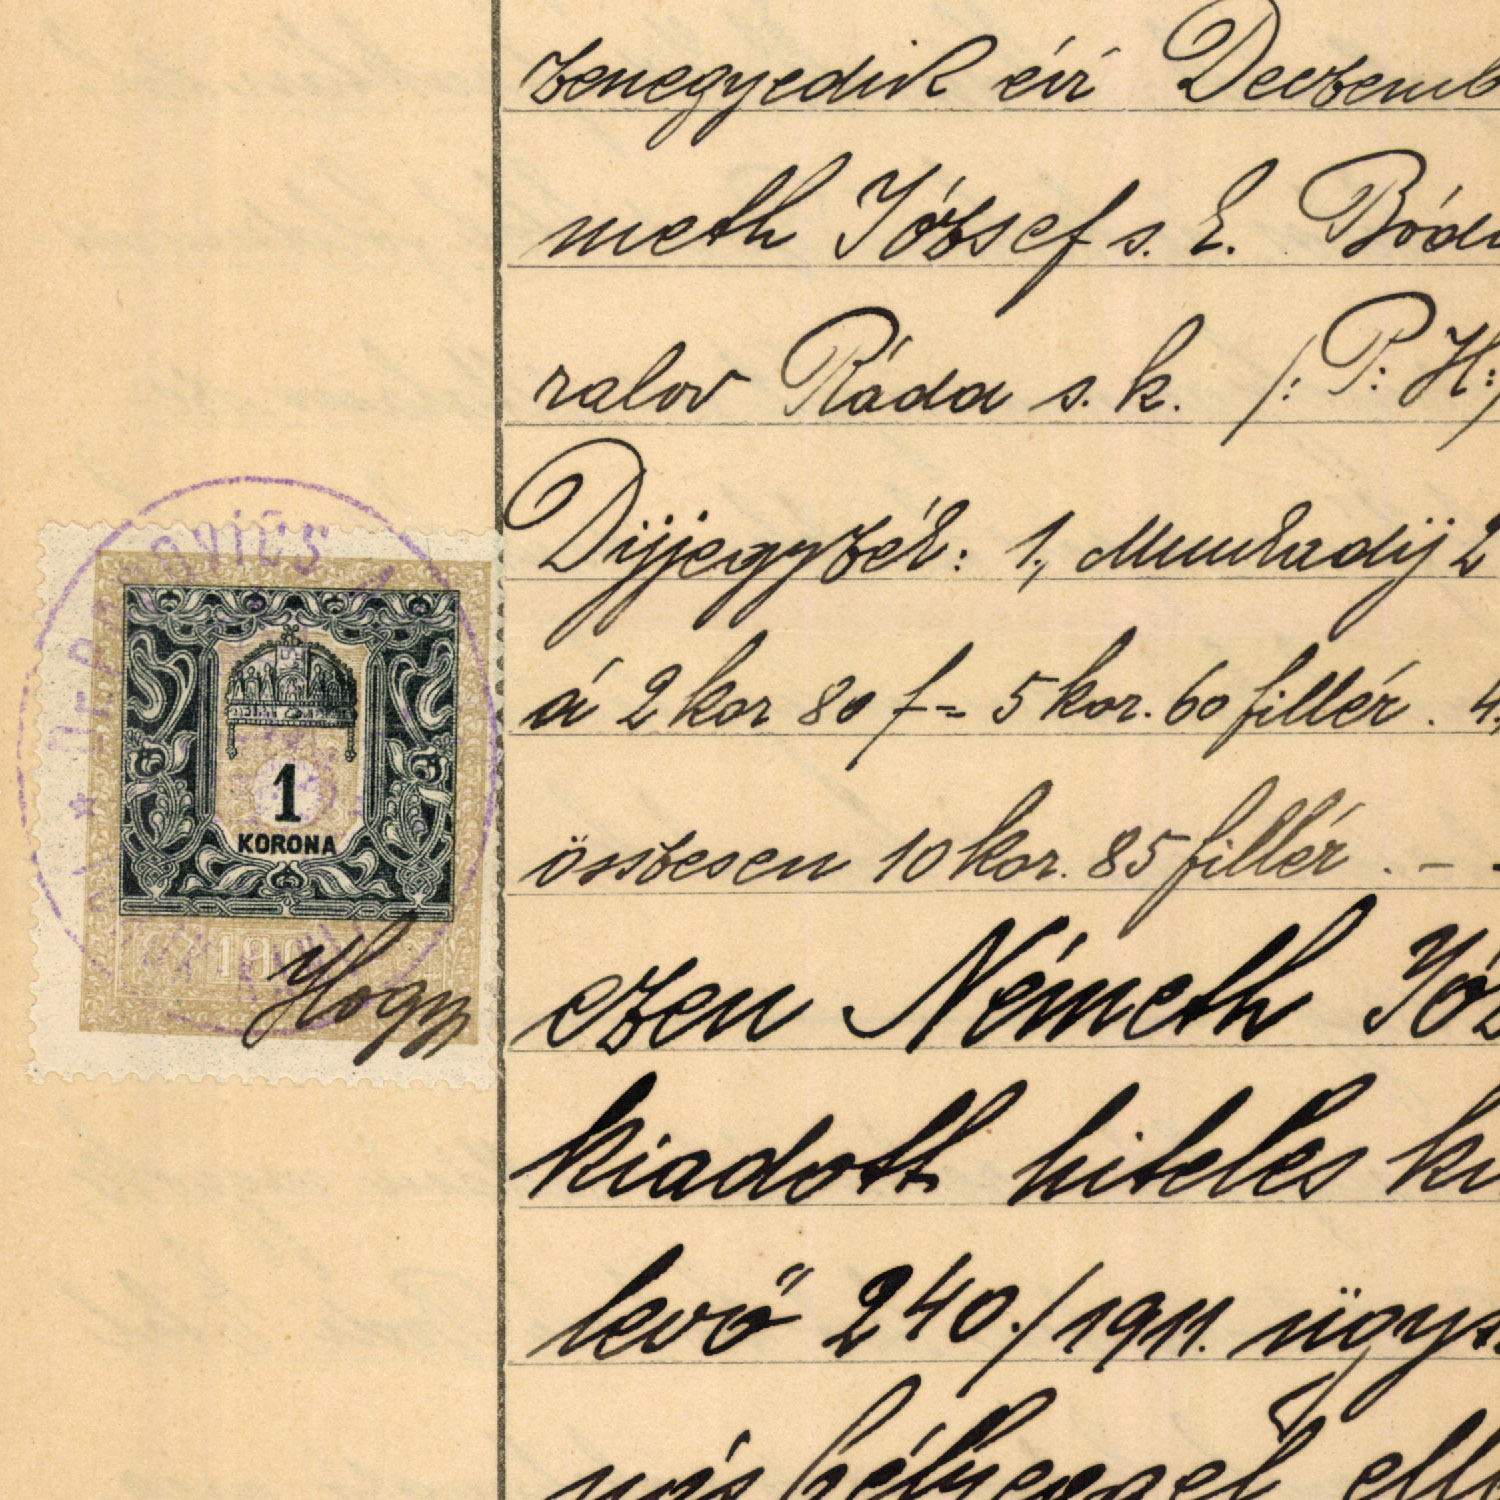 zenegyedik évi Deczemb
meth József s. k. Bódi
ralov Ráda s. k. /: P. H:/
Díjjegyzék: 1., Munkadíj 2
á 2 kor 80 f = 5 kor. 60 fillér. 4,
összesen 10 kor. 85 fillér. - -
ezen Németh Józ
kiadott hiteles ki
levő 240./1911. ügysz
más bélyeggel ell
1
KORONA
Hogy